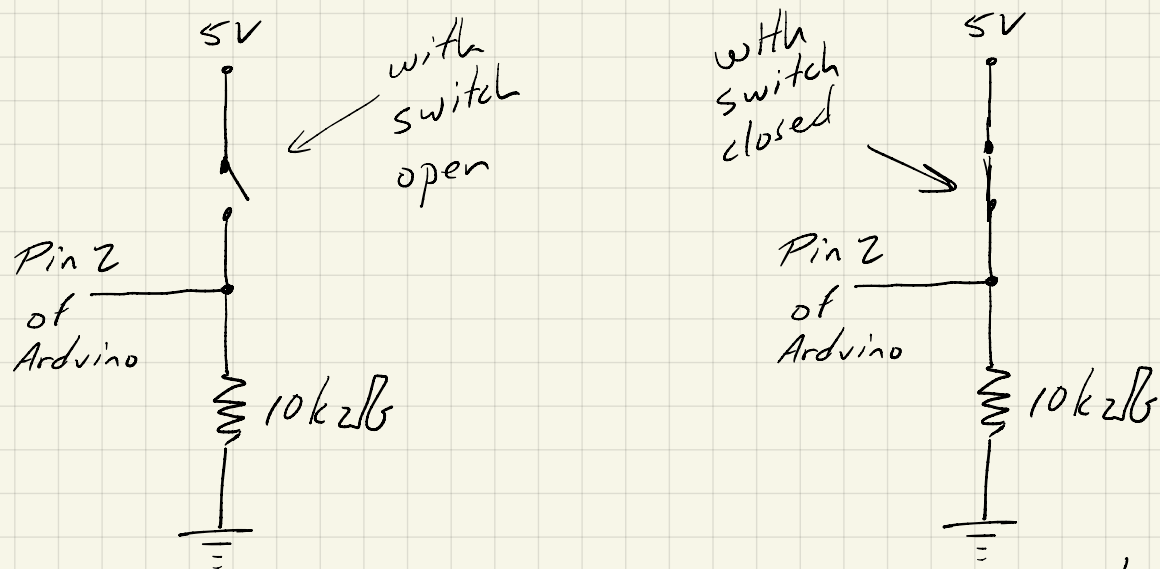 5V
with
switch
open
Pin 2
of
Arduino
10k
5V
with
switch
closed
Pin 2
of
Arduino
10k